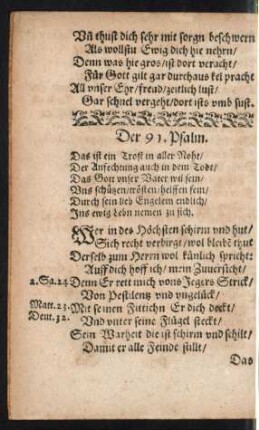 Vñ thust dich sehr mit sorgn beschwern
Als wollstu Ewig dich hie nehrn/
Denn was hie gros/ ist dort veracht/
Für Gott gilt gar durchaus kei pracht
All vnser Ehr/ freud/ zeitlich lust/
Gar schnel vergeht/ dort ists vmb sust.
Der 91. Psalm.
Das ist ein Trost in aller Noht/
Der Anfechtung auch in dem Todt/
Das Gott vnser Vater wil sein/
Vns schützen/ trösten/ helffen fein/
Durch sein lieb Engelein endlich/
Ins ewig Lebn nemen zu sich.
Wer in des Höchsten schirm vnd hut/
Sich recht verbirgt/ wol bleibt
Derselb zum Herrn wol künlich spricht:
Auff dich hoff ich/ mein Zuuersicht/
2. Sa. 24 Denn Er rett mich vons Jegers Strick/
Von Pestilentz vnd vnglück/
Matt. 23. Mit seinen Fittichn Er dich deckt/
Deut. 32. Vnd vnter seine Flügel steckt/
Sein Warheit die ist schirm vnd schilt/
Damit er alle Feinde stillt/
Das